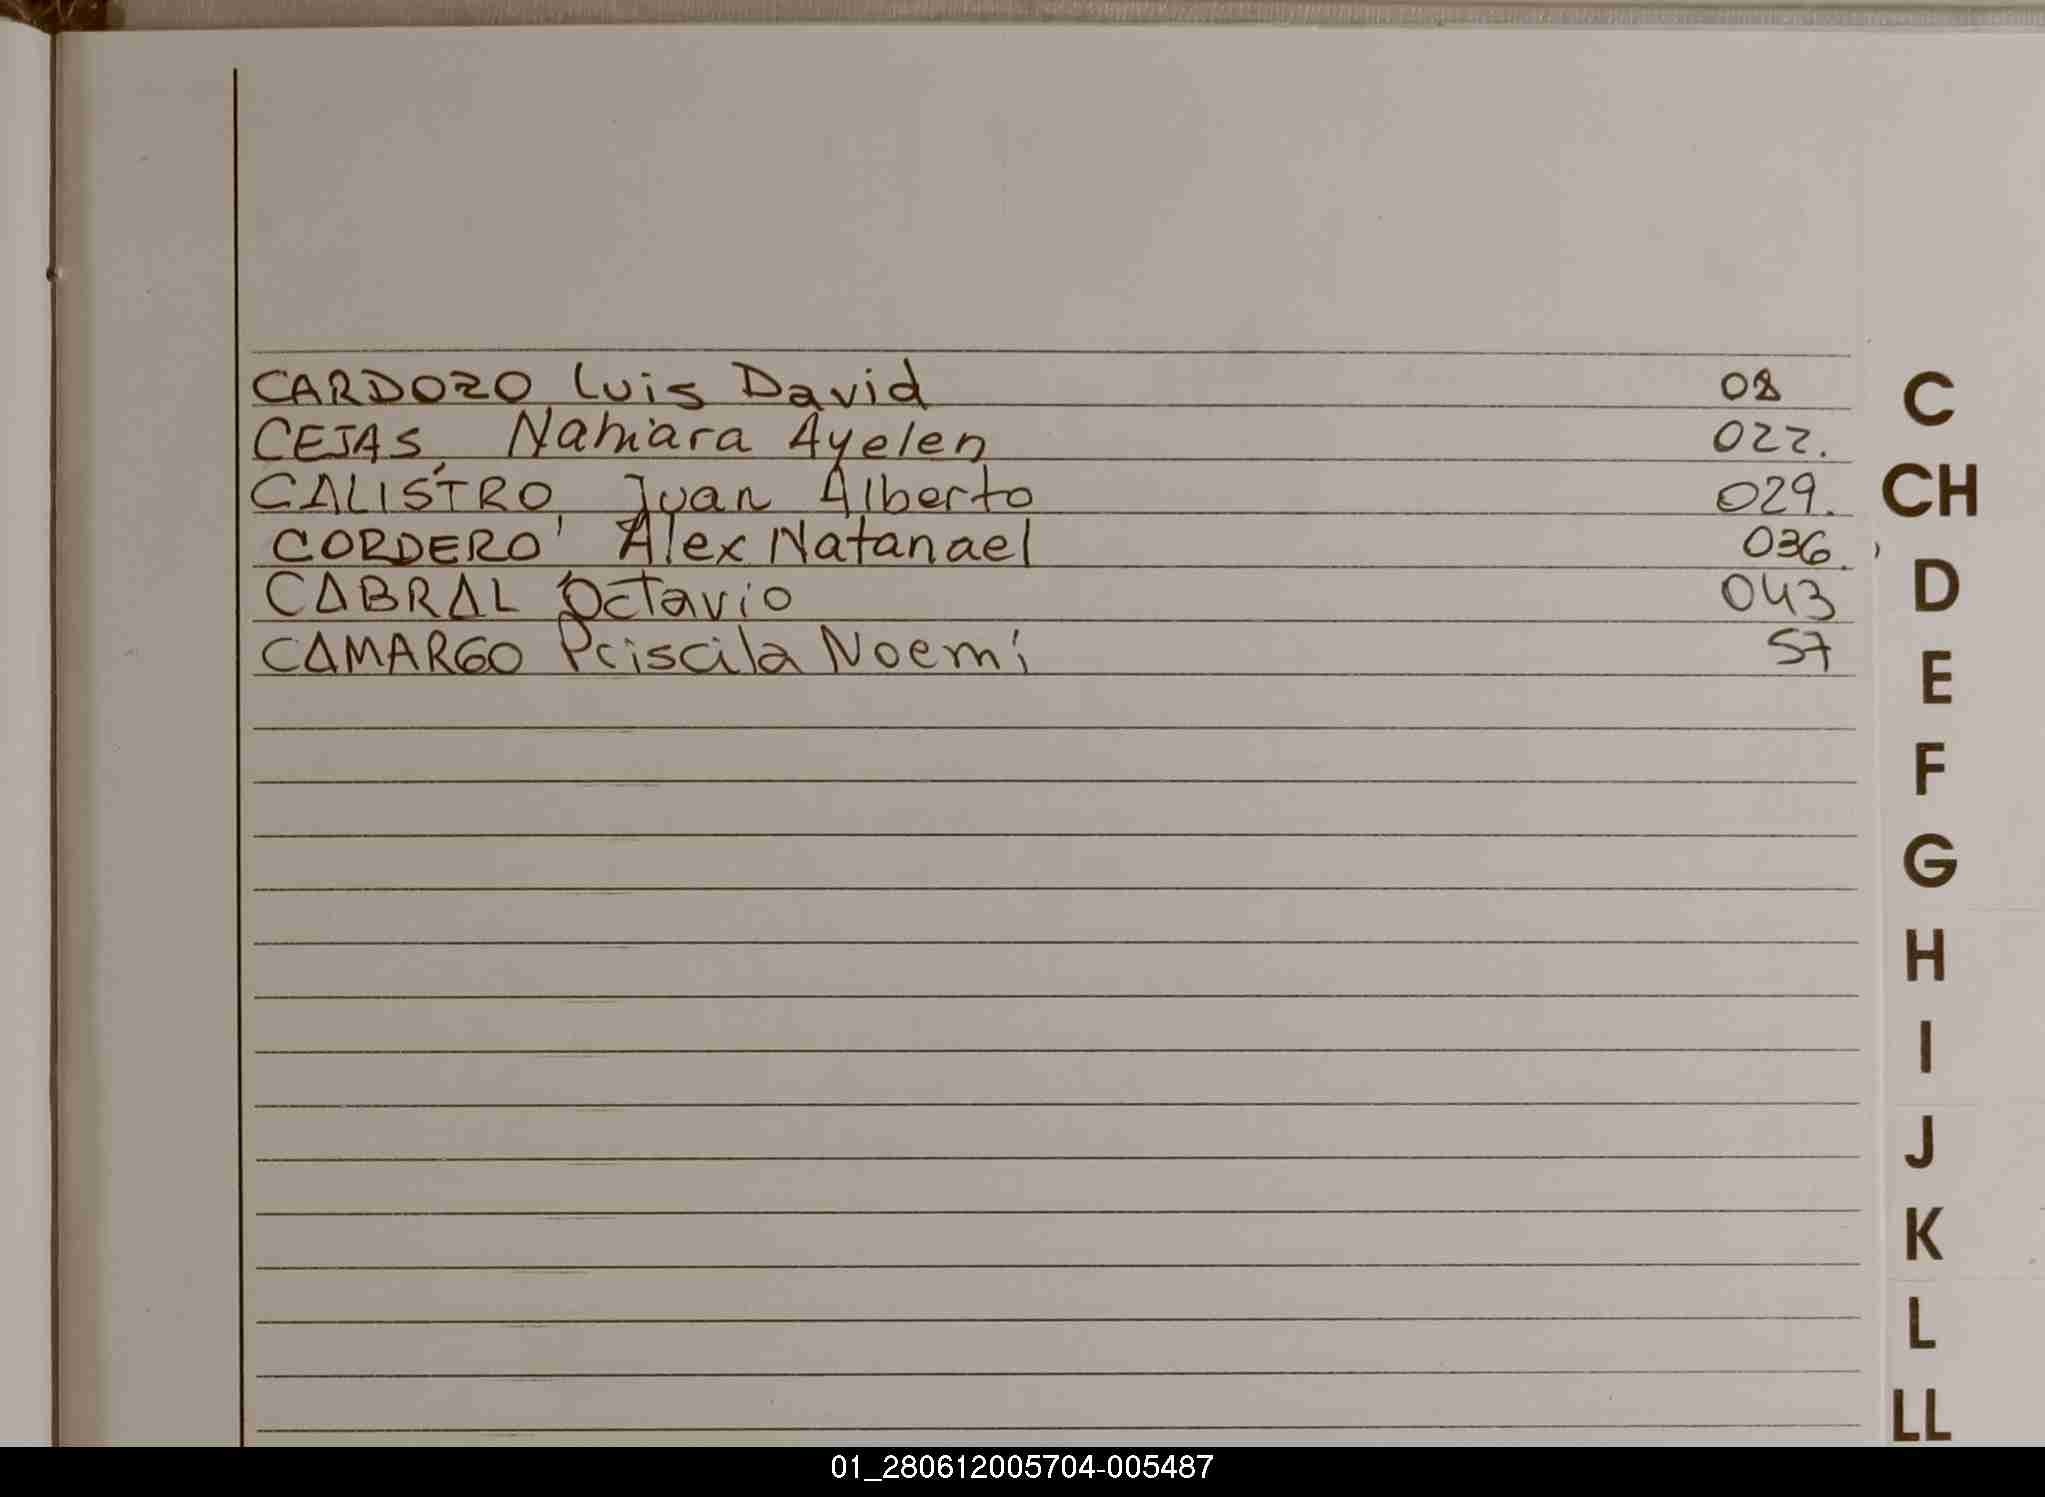 CARDOZO Luis David 08
CEJAS, Nahiara Ayelen 022.
CALISTRO, Juan Alberto 029.
CORDERO Alex Natanael 036.
CABRAL Octavio 043
CAMARGO Priscila Noemí 57
C
CH
D
E
F
G
H
I
J
K
L
LL
01_280612005704-005487